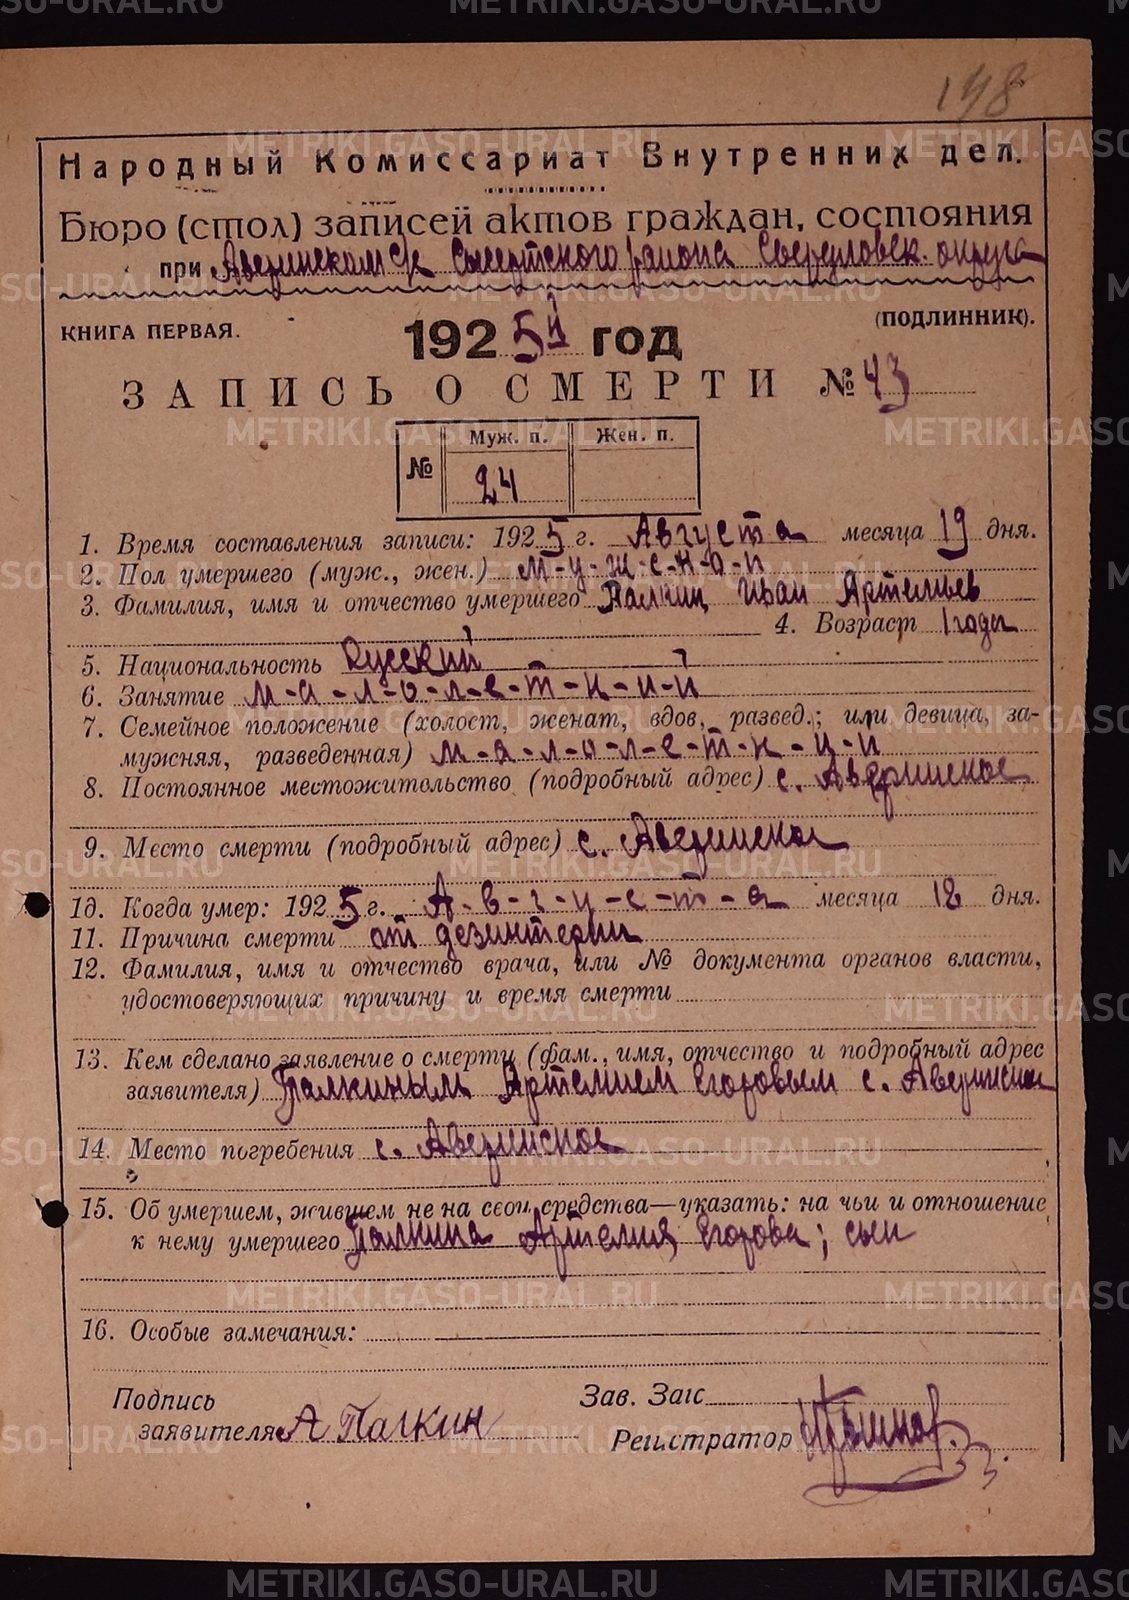 198
Народный Комиссариат Внутренних дел.
Бюро (стол) записей актов граждан, состояния
при Аверинском с/с Сысертского района Свердловск. округа
КНИГА ПЕРВАЯ.
(ПОДЛИННИК).
1925й год
ЗАПИСЬ О СМЕРТИ № 43
Муж. п. Жен. п.
№ 24
1. Время составления записи: 1925 г. Августа месяца 19 дня.
2. Пол умершего (муж., жен.) м-у-ж-с-к-о-й
3. Фамилия, имя и отчество умершего Палкин Иван Артемьев
4. Возраст 1 года
5. Национальность Русский
6. Занятие м-а-л-о-л-е-т-н-и-й
7. Семейное положение (холост, женат, вдов, развед.; или девица, за-
мужняя, разведенная) м-а-л-о-л-е-т-н-и-й
8. Постоянное местожительство (подробный адрес) с. Аверинское
9. Место смерти (подробный адрес) с. Аверинское
10. Когда умер: 1925 г. А-в-г-у-с-т-а месяца 18 дня.
11. Причина смерти от дезинтерии
12. Фамилия, имя и отчество врача, или № документа органов власти,
удостоверяющих причину и время смерти
13. Кем сделано заявление о смерти (фам., имя, отчество и подробный адрес
заявителя) Палкиным Артемием Егоровым с. Аверинское
14. Место погребения с. Аверинское
15. Об умершем, жившем не на свои средства—указать: на чьи и отношение
к нему умершего Палкина Артемия Егорова; сын
16. Особые замечания:
Подпись
заявителя А Палкин
Зав. Загс
Регистратор
METRIKI.GASO-URAL.RU